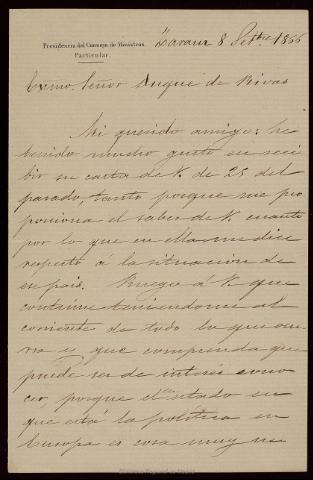 Presidencia del Consejo de Ministros.
Particular.
Zarauz 8 Setbre 1866
Exmo. Señor Duque de Rivas
Mi querido amigo: he
tenido mucho gusto en reci
bir su carta de V. de 25 del
pasado, tanto porque me pro
porciona el saber de V. cuanto
por lo que en ella me dice
respecto á la situacion de
ese pais. Ruego á V. que
continue teniendome al
corriente de todo lo que ocu
rra y que comprenda que
puede ser de interés cono
cer, porque el estado en
que está la politica en
Europa es cosa muy ne